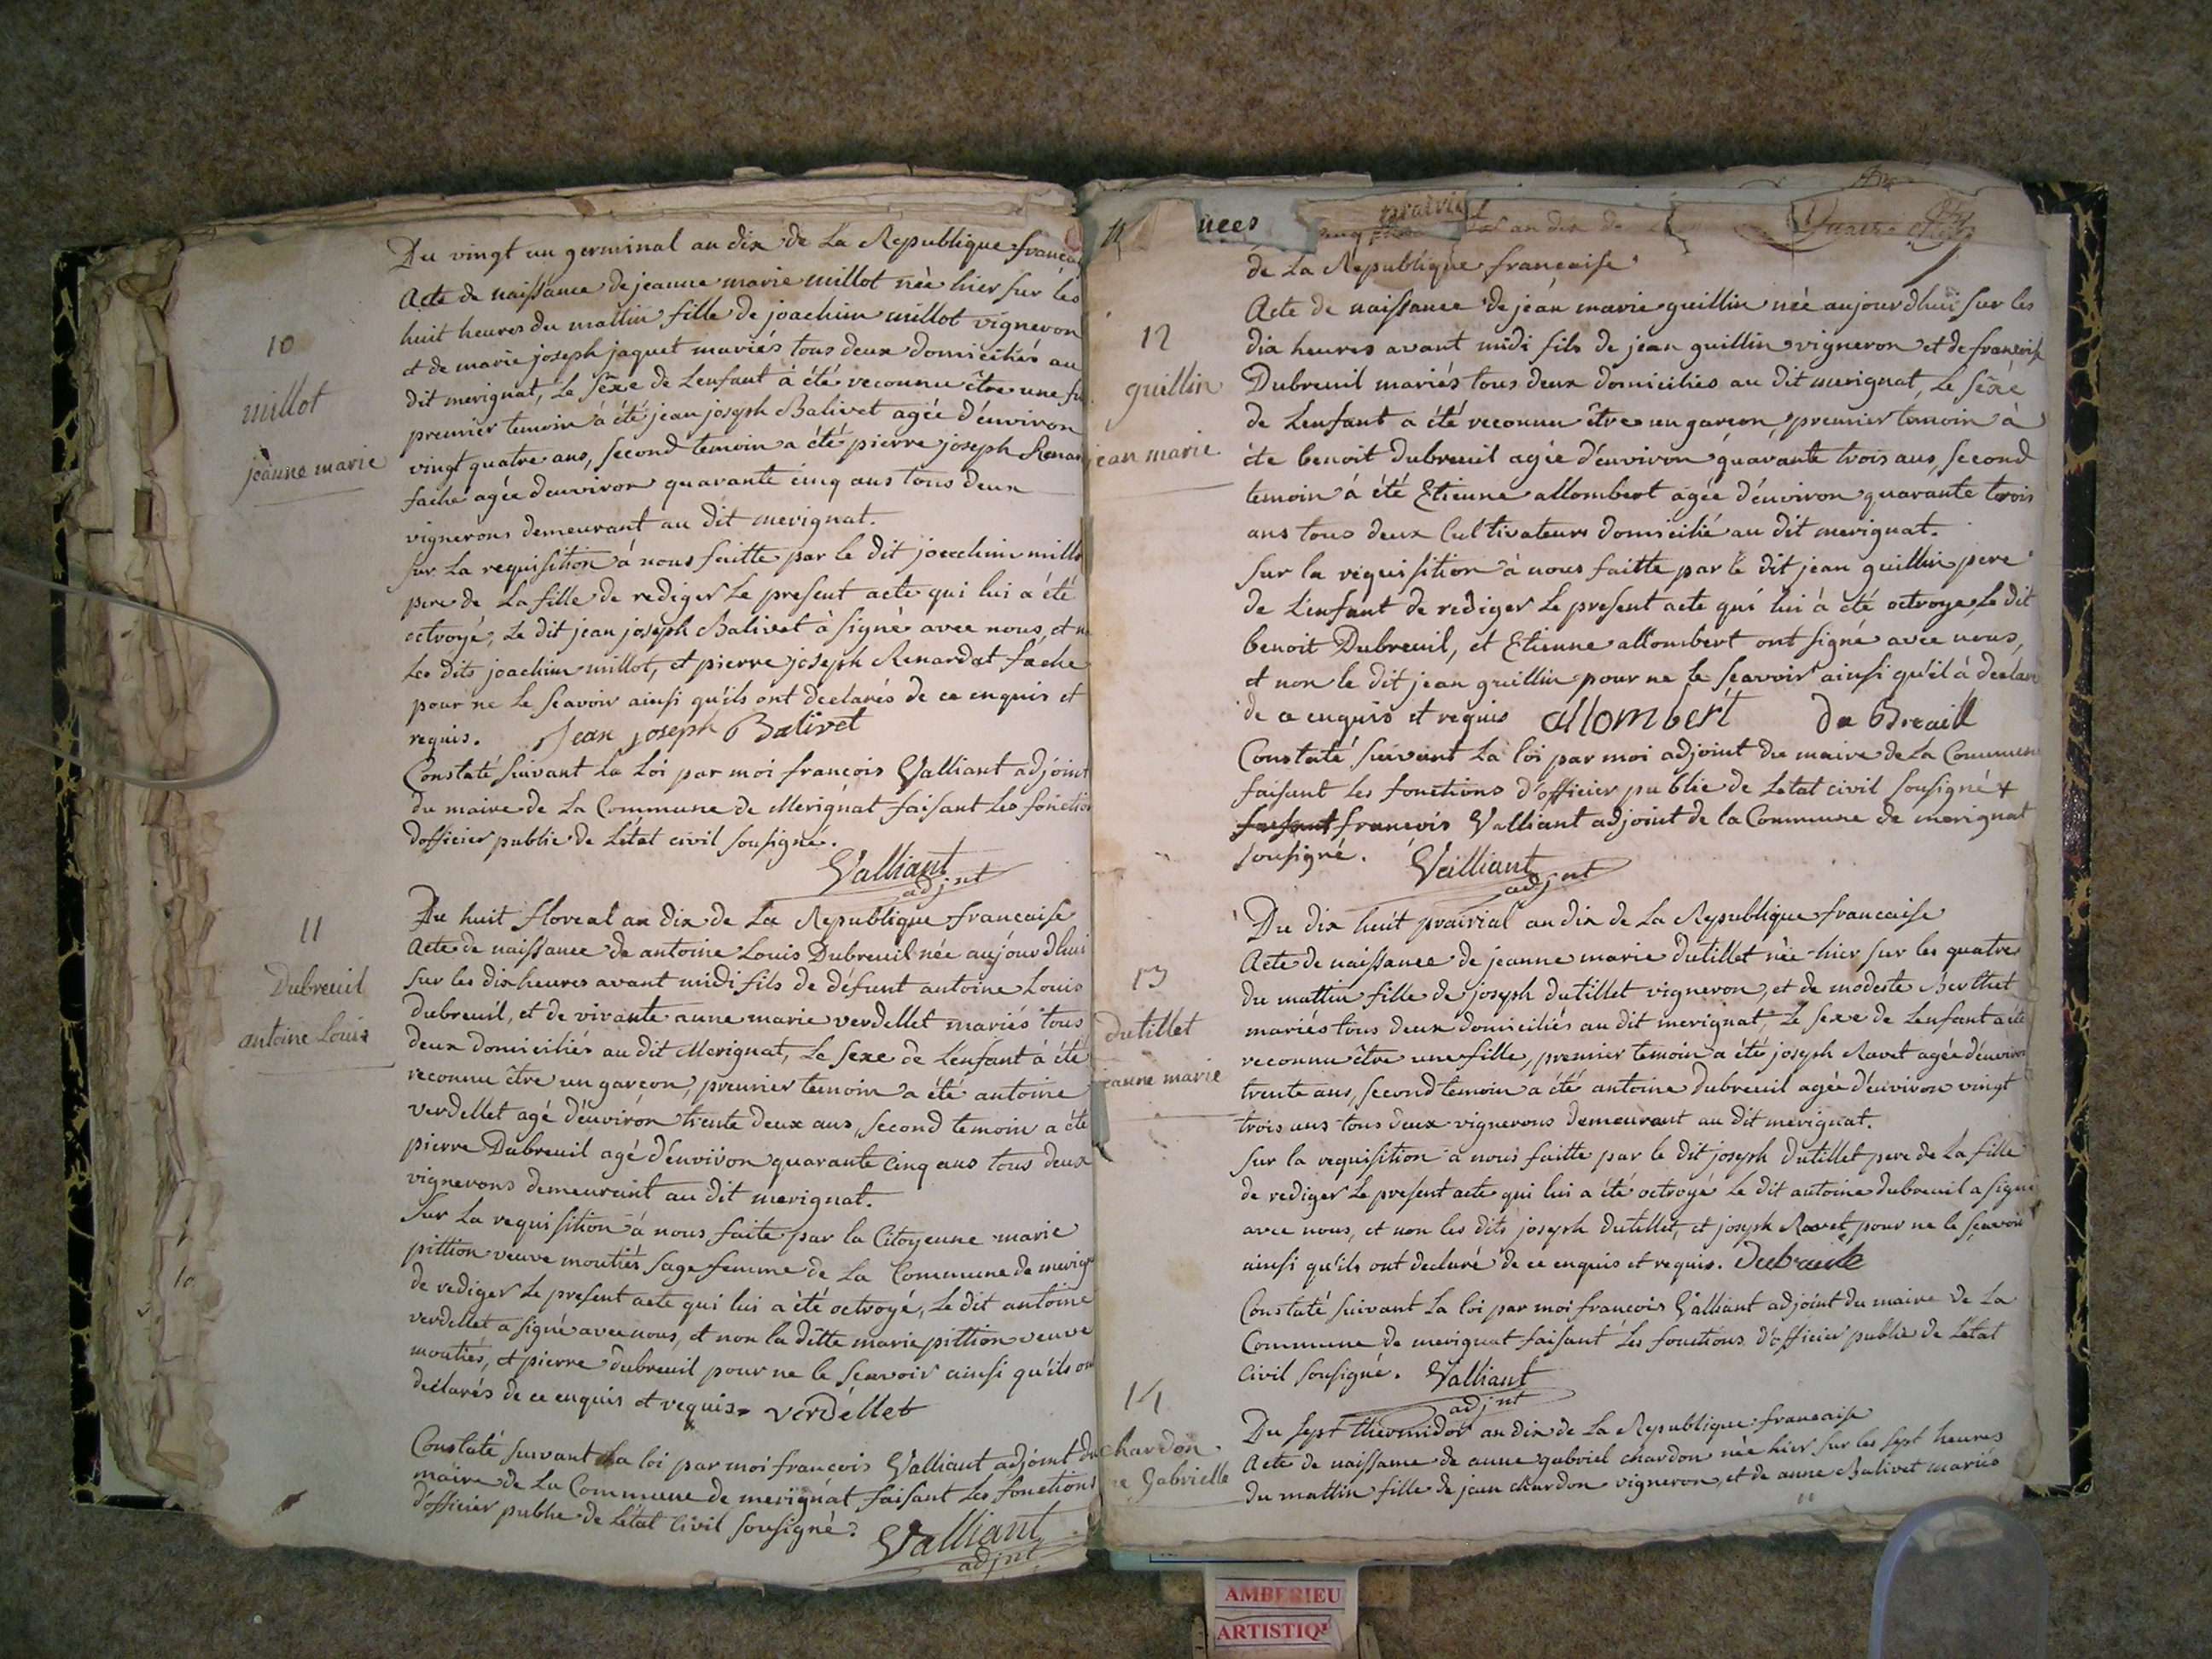 Du vingt un germinal an dix de La Republique francai
Acte de naissance de jeanne marie millot née hier sur les
huit heures du mattin fille de joachim millot vigneron
10
et de marie joseph jaquet mariés tous deux domiciliés au
millot
dit merignat, Le sexe de Lenfant à été reconnu être une fi
premier temoin à été jean joseph Balivet agée d'environ
jeanne marie
vingt quatre ans, second temoin a été pierre joseph Renar
fache agée d'environ quarante cinq ans tous deux
vignerons demeurant au dit merignat.
sur La requisition à nous faitte par le dit joachim millo
pere de La fille de rediger Le present acte qui lui a été
octroyé, Le dit jean joseph Balivet à signé avec nous, et n
Les dits joachim millot, et pierre joseph Renardat fache
pour ne Le scavoir ainsi qu'ils ont declarés de ce enquis et
requis. Jean joseph Balivet
Constaté suivant La Loi par moi francois Valliant adjoint
du maire de La Commune de Merignat faisant Les fonction
d'officier public de L'état civil sousigné.
Valliant
adjnt
Du huit floreal an dix de La Republique francaise
11
Acte de naissance de antoine Louis Dubreuil née aujourdhui
Dubreuil
sur les dix heures avant midi fils de défunt antoine Louis
antoine Louis
dubreuil, et de vivante anne marie verdellet mariés tous
deux domiciliés au dit Merignat, Le sexe de L'enfant à été
reconnu être un garcon, premier temoin a été antoine
verdellet agé d'environ trente deux ans, second temoin a été
pierre Dubreuil agé d'environ quarante cinq ans tous deux
vignerons demeurant au dit merignat.
Sur La requisition à nous faite par la Citoyenne marie
pittion veuve moutiés sage femme de La Commune de merig
de rediger Le present acte qui lui a été octroyé, Le dit antoine
verdellet a signé avec nous, et non la ditte marie pittion veuve
moutiés, et pierre dubreuil pour ne le scavoir ainsi qu'ils on
declarés de ce enquis et requis. verdellet
Constaté suivant La loi par moi francois Valliant adjoint du
maire de La Commune de merignat faisant Les fonctions
d'officier public de L'état Civil sousigné.
Valliant
adjnt
nees
prairial
an dix de
de La Republique francaise
Acte de naissance de jean marie guillin née aujourdhui sur les
12
dix heures avant midi fils de jean guillin vigneron et de francoise
guillin
Dubreuil mariés tous deux domiciliés au dit merignat, Le sexe
de Lenfant a été reconnu être un garcon, premier temoin à
jean marie
éte benoit Dubreuil agée d'environ quarante trois ans, second
temoin à été Etienne allombert agée d'environ quarante trois
ans tous deux Cultivateurs domicilié au dit merignat.
sur la requisition à nous faitte par le dit jean guillin pere
de L'enfant de rediger Le present acte qui lui à été octroye, Le dit
benoit Dubreuil, et Etienne allombert ont signé avec nous,
et non le dit jean guillin pour ne le scavoir ainsi qu'il à declaré
de ce enquis et requis allombert du Breaill
Constaté suivant La loi par moi adjoint du maire de La Commune
faisant Les fonctions d'officier public de Letat civil sousigné +
faisant francois Valliant adjoint de la Commune de merignat
sousigné. Valliant
adjnt
Du dix huit prairial an dix de La Republique francaise
Acte de naissance de jeanne marie dutillet née hier sur les quatre
13
du mattin fille de joseph dutillet vigneron, et de modeste Berthet
dutillet
mariés tous deux domiciliés au dit merignat, Le sexe de Lenfant a été
reconnu être une fille, premier temoin a été joseph Ravet agée d'environ
jeanne marie
trente ans, second temoin a été antoine dubreuil agée d'environ vingt
trois ans tous deux vignerons demeurant au dit merignat.
Sur la requisition a nous faitte par le dit joseph dutillet pere de La fille
de rediger Le present acte qui lui a été octroyé Le dit antoine dubreuil a signé
avec nous, et non les dits joseph dutillet, et joseph Ravet pour ne le scavoir
ainsi qu'ils ont declaré de ce enquis et requis.
Constaté suivant La loi par moi francois Valliant adjoint du maire de La
Commune de merignat faisant Les fonctions d'officier public de L'etat
civil sousigné. Valliant
adjnt
14
Du sept thermidor an dix de La Republique francaise
chardon
Acte de naissance de anne gabriel chardon née hier sur les sept heures
Gabrielle
du mattin fille de jean chardon vigneron, et de anne Balivet mariés
AMBERIEU
ARTISTIQ